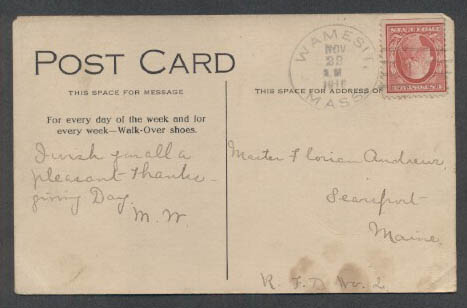 POST CARD
THIS SPACE FOR MESSAGE
For every day of the week and for
every week—Walk-Over shoes.
I wish you all a
pleasant Thanks-
giving Day.
M. W.
WAMESIT
NOV
22
MASS.
THIS SPACE FOR ADDRESS O
Master Florian Andrews
Searsport
Maine.
R. F. D. No. 2.